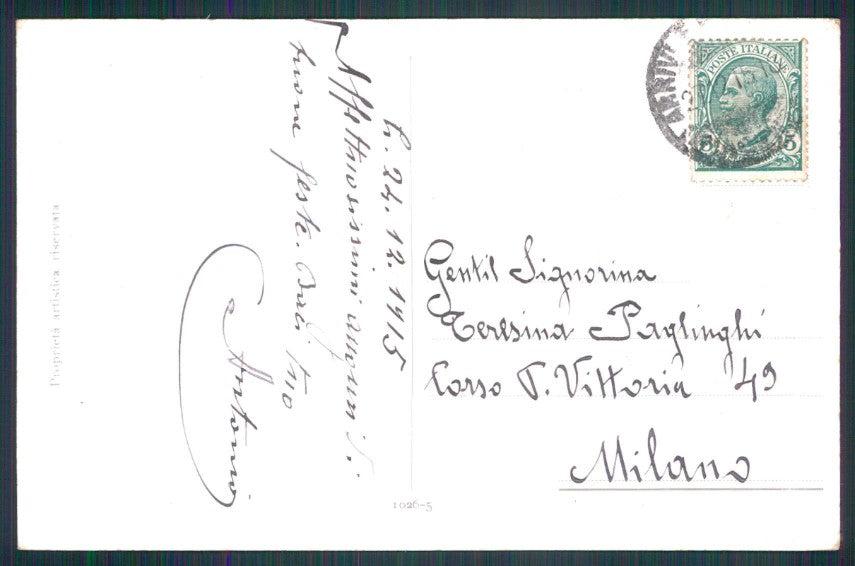 li. 24.12.1915
Affettuosissimi auguri di
buone feste. Baci tuo
Antonio
Gentil Signorina
Teresina Paglinghi
Corso P. Vittoria 49
Milano
POSTE ITALIANE
5 5
ARRIVI
Proprietà artistica riservata
1026-5